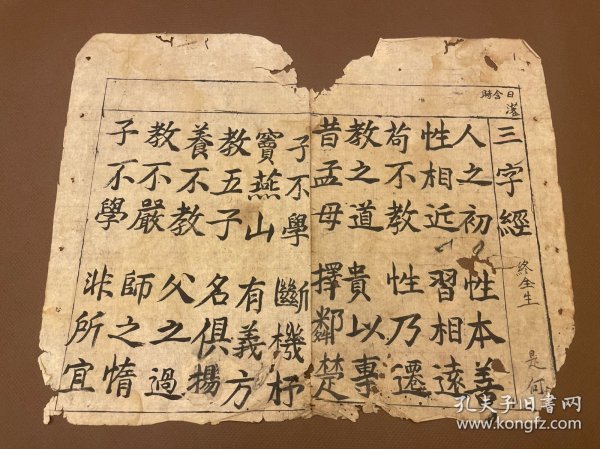 三字經
人之初 性本善
性相近 習相遠
苟不教 性乃遷
教之道 貴以專
昔孟母 擇鄰楚
子不學 斷機杼
竇燕山 有義方
教五子 名俱揚
養不教 父之過
教不嚴 師之惰
子不學 非所宜
是何
孔夫子旧書网
www.kongfz.com